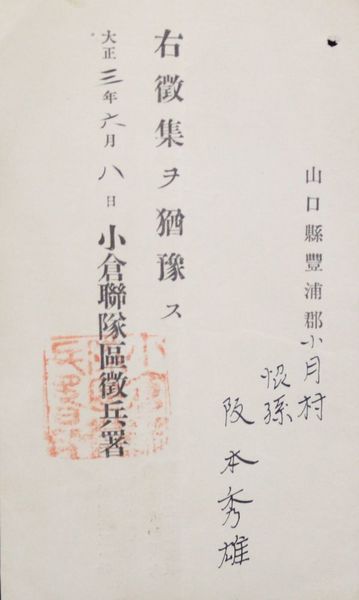 山口縣豐浦郡小月村
阪本秀雄
右徵集ヲ猶豫ス
大正三年六月八日
小倉聯隊區徵兵署